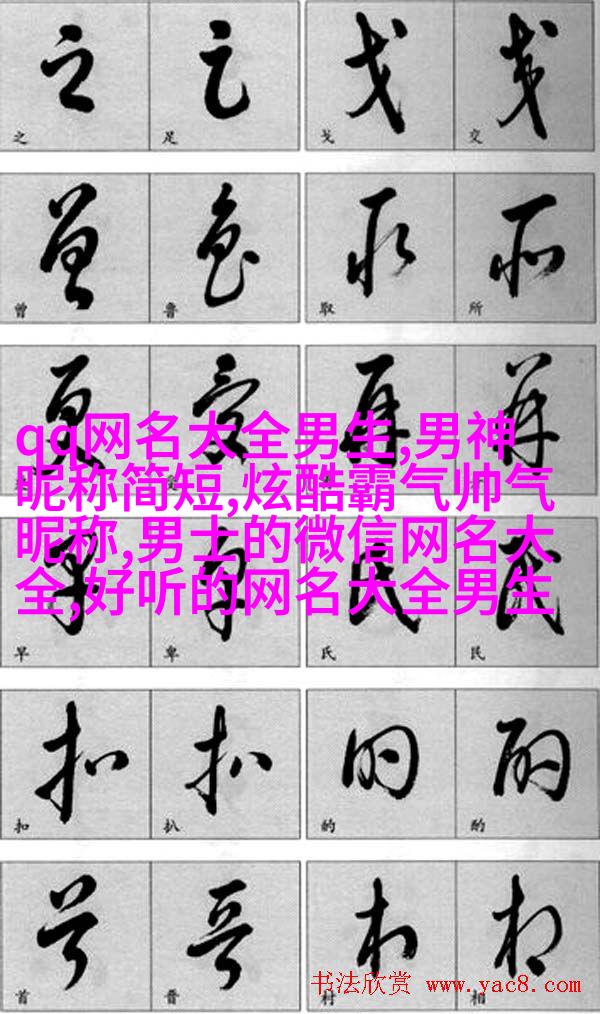 之 足 戈 交
曾 鲁 取 所
qq网名大全男生,男神
昵称简短,炫酷霸气帅气
昵称,男士的微信网名大
全,好听的网名大全男生
早 卑 氏 民
扣 扒 的 酌
首 晋 村 相
书法欣赏 www.yac8.com